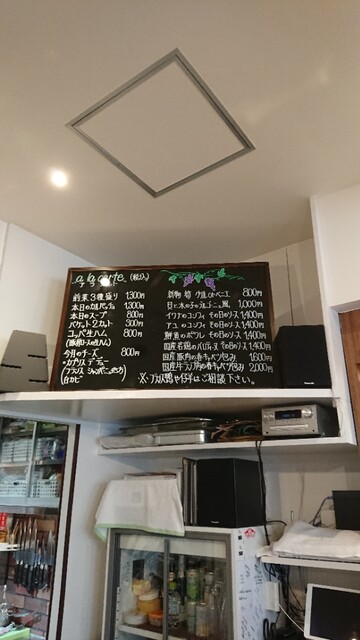 a la carte (税込)
アラカルト
前菜3種盛り 1,300円
本日のカルパッチョ 1,300円
本日のスープ 800円
バケット2カット 300円
コッパ生ハム 800円
(豚肩ロース生ハム)
今月のチーズ 800円
フランス シャンパーニュ
白カビ
800円
1,000円
イワナのコンフィ その日のソース 1,400円
アユのコンフィ その日のソース 1,400円
鮮魚のポワレ その日のソース 1,400円
国産若鶏のバロティーヌ その日のソース 1,400円
国産豚肉の春キャベツ包み 1,600円
国産牛ランプ肉の春キャベツ包み 2,000円
ご相談下さい。
Panasonic